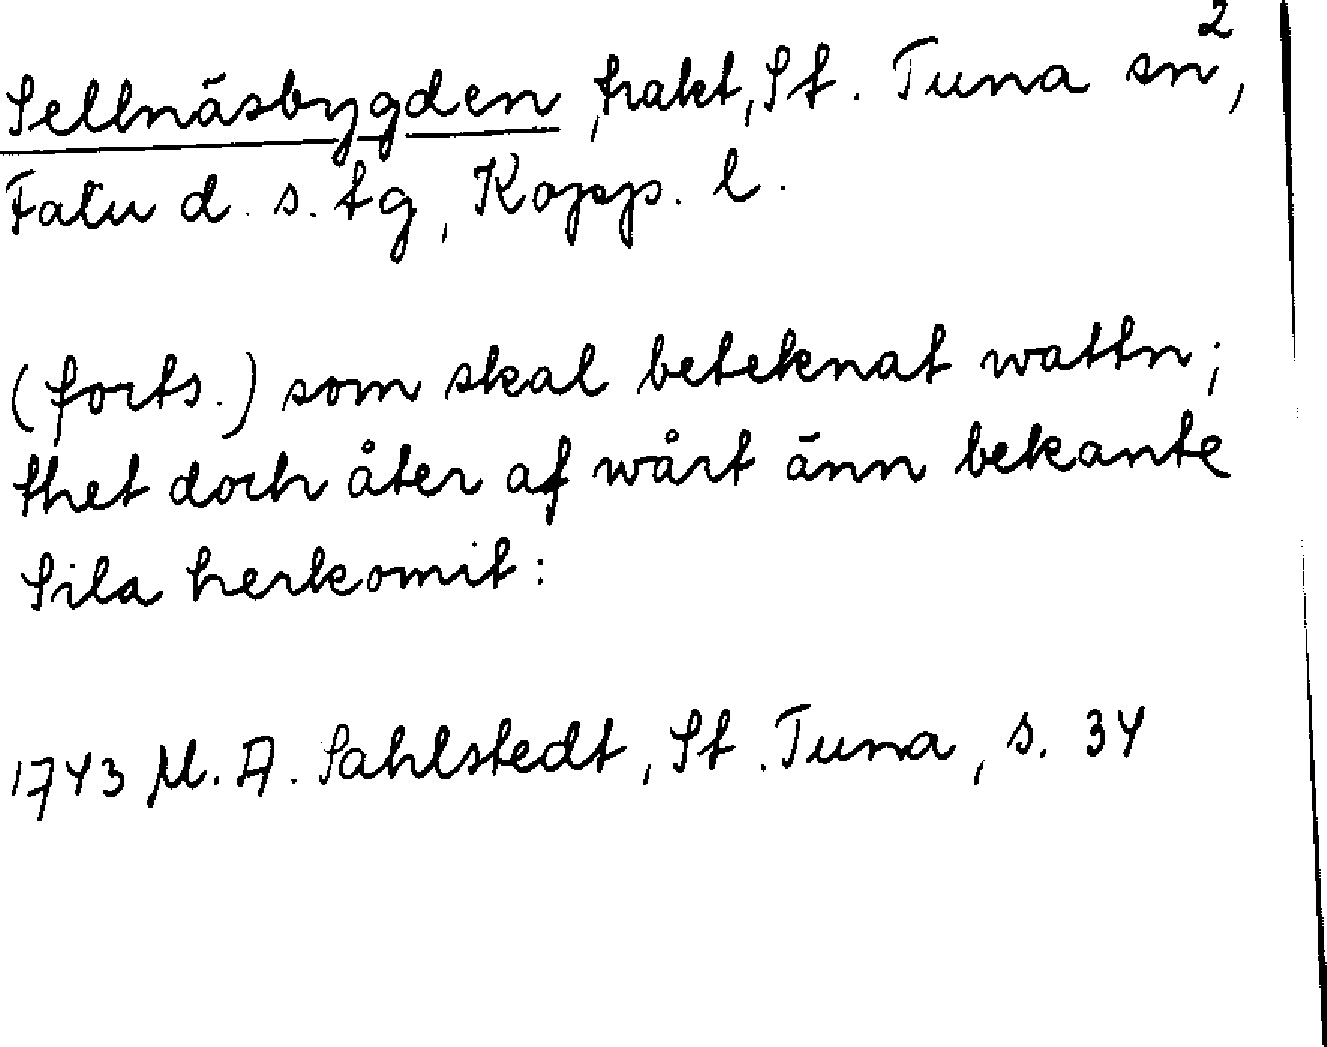 2
Sellnäsbygden, trakt, St. Tuna sn,
Falu d. s. tg, Kopp. l.
(forts.) som skal beteknat wattn;
thet doch åter af wårt änn bekante
Sila herkomit:
1743 M. A. Sahlstedt, St. Tuna, s. 34